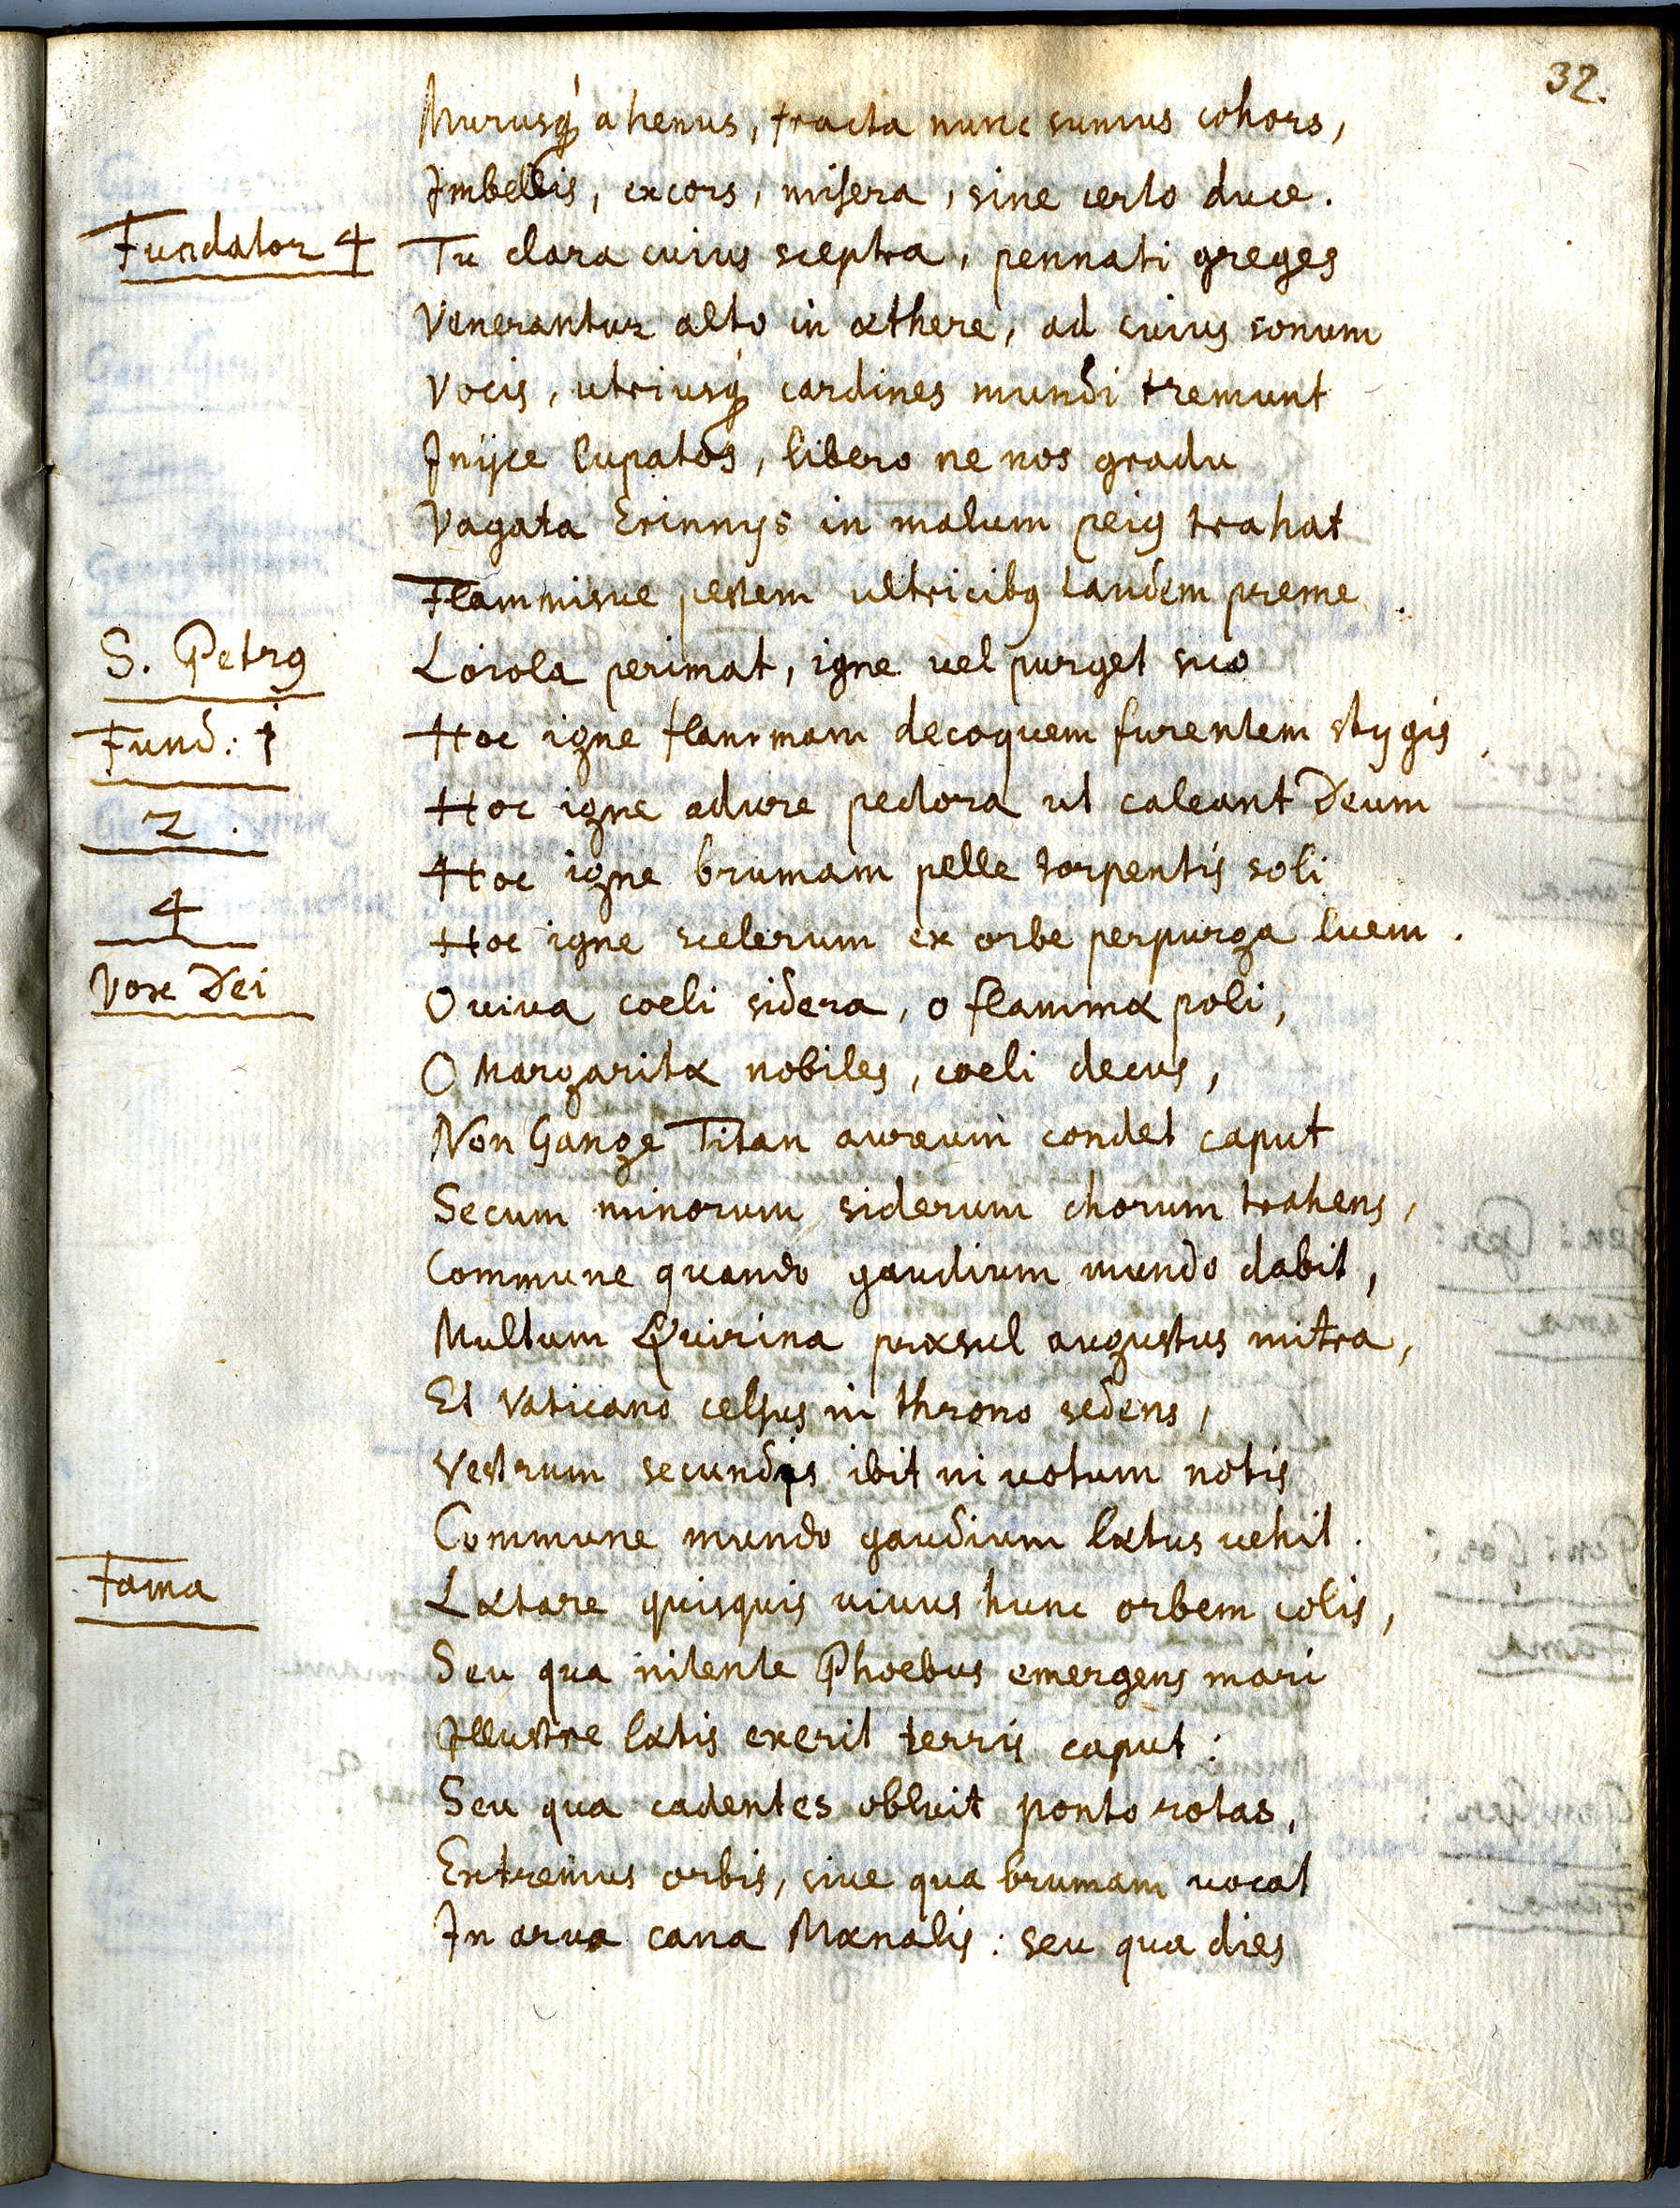 32.
Murusq́ ahenus, fracta nunc sumus cohors,
Imbellis, excors, misera, sine certo duce.
Fundator 4 Tu clara cuius sceptra, pennati greges
Venerantur alto in æthere, ad cuius sonum
Vocis, utriusq́ cardines mundi tremunt
Inijce lupatos, libero ne nos gradu
Vagata Erinnys in malum peiꝰ trahat
Flammisue pestem ultricibꝰ tandem preme.
S. Petrꝰ Loiola perimat, igne uel purget suo
Fund: 1 Hoc igne flammam decoquem furentem stygis
2. Hoc igne adure pectora ut caleant Deum
4 Hoc igne brumam pelle torpentis soli
Hoc igne scelerum ex orbe perpurga luem.
Vox Dei O uiua coeli sidera, o flammæ poli,
O Margaritæ nobiles, coeli decus,
Non Gange Titan aureum condet caput
Secum minorum siderum chorum trahens,
Commune quando gaudium mundo dabit,
Multum Quirina præsul augustus mitra,
Et Vaticano celsus in throno sedens,
Vestrum secundis ibit in uotum notis
Commune mundo gaudium lætus uehit.
Fama Lætare quisquis uiuus hunc orbem colis,
Seu qua nitente Phoebus emergens mari
Illustre lætis exerit terris caput:
Seu qua cadentes obluit ponto rotas,
Extremus orbis, siue qua brumam uocat
In arua cana Mænalis: seu qua dies